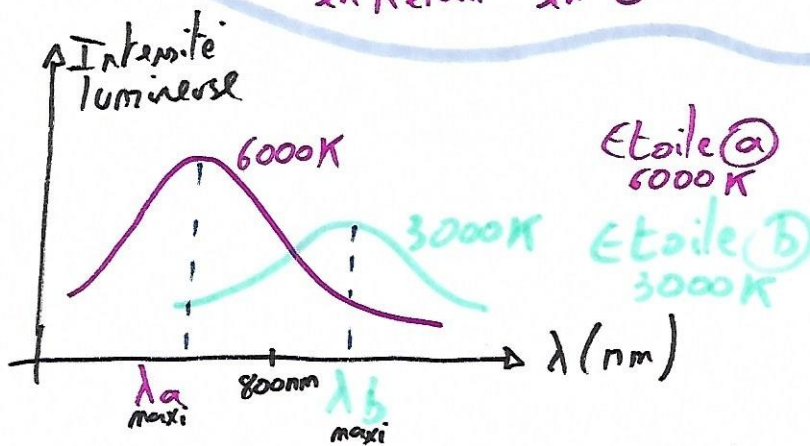 Intensité
lumineuse
6000K
3000K
Etoile ⓐ
6000K
Etoile ⓑ
3000K
λa
maxi
800nm
λb
maxi
λ(nm)